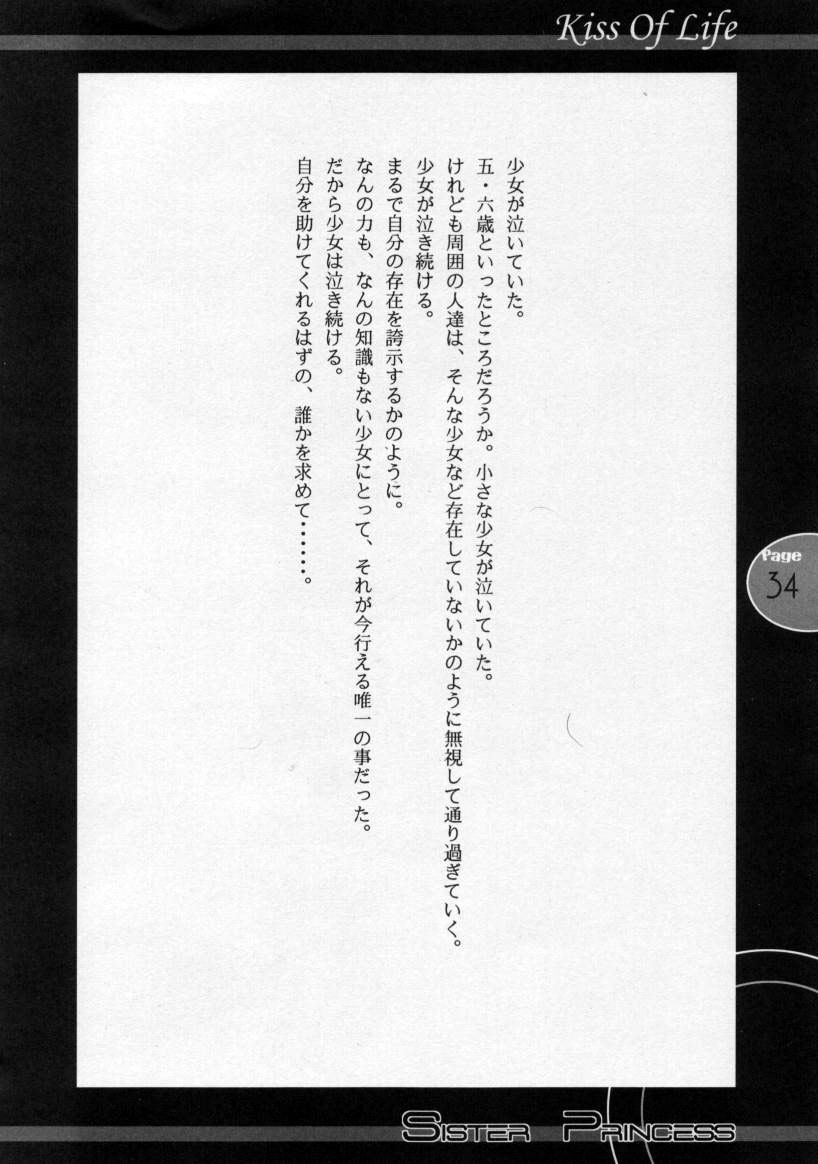 Kiss Of Life
少女が泣いていた。
五・六歳といったところだろうか。小さな少女が泣いていた。
けれども周囲の人達は、そんな少女など存在していないかのように無視して通り過ぎていく。
少女が泣き続ける。
まるで自分の存在を誇示するかのように。
なんの力も、なんの知識もない少女にとって、それが今行える唯一の事だった。
だから少女は泣き続ける。
自分を助けてくれるはずの、誰かを求めて・・・・・・。
Page
34
SISTER PRINCESS